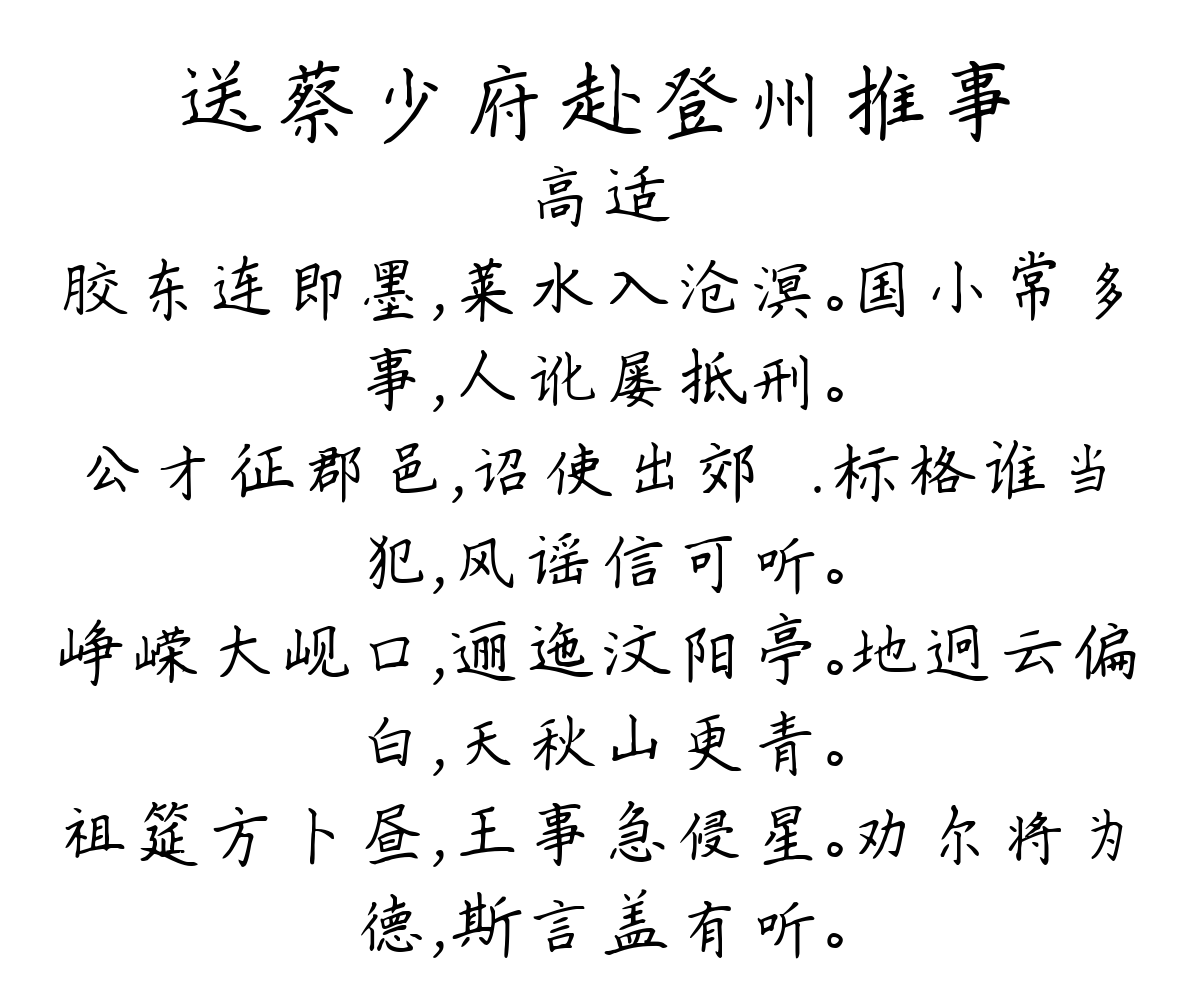 送蔡少府赴登州推事
高适
胶东连即墨,莱水入沧溟。国小常多
事,人讹屡抵刑。
公才征郡邑,诏使出郊 .标格谁当
犯,风谣信可听。
峥嵘大岘口,逦迤汶阳亭。地迥云偏
白,天秋山更青。
祖筵方卜昼,王事急侵星。劝尔将为
德,斯言盖有听。